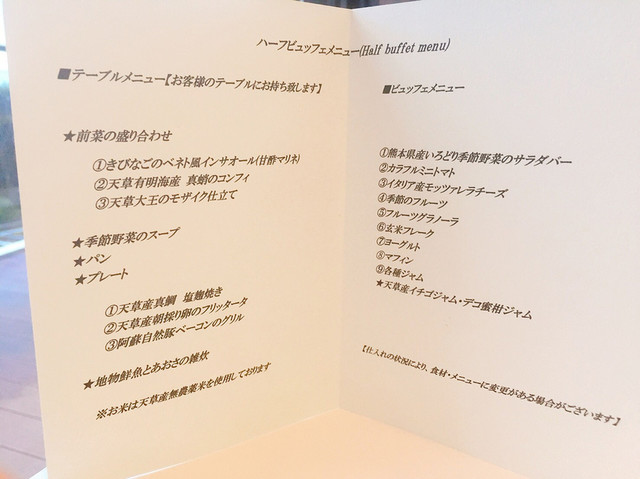 ハーフビュッフェメニュー(Half buffet menu)
■テーブルメニュー【お客様のテーブルにお持ち致します】
★前菜の盛り合わせ
①きびなごのベネト風インサオール(甘酢マリネ)
②天草有明海産 真蛸のコンフィ
③天草大王のモザイク仕立て
★季節野菜のスープ
★パン
★プレート
①天草産真鯛 塩麹焼き
②天草産朝採り卵のフリッタータ
③阿蘇自然豚ベーコンのグリル
★地物鮮魚とあおさの雑炊
※お米は天草産無農薬米を使用しております
■ビュッフェメニュー
①熊本県産いろどり季節野菜のサラダバー
②カラフルミニトマト
③イタリア産モッツァレラチーズ
④季節のフルーツ
⑤フルーツグラノーラ
⑥玄米フレーク
⑦ヨーグルト
⑧マフィン
⑨各種ジャム
★天草産イチゴジャム・デコ蜜柑ジャム
【仕入れの状況により、食材・メニューに変更がある場合がございます】